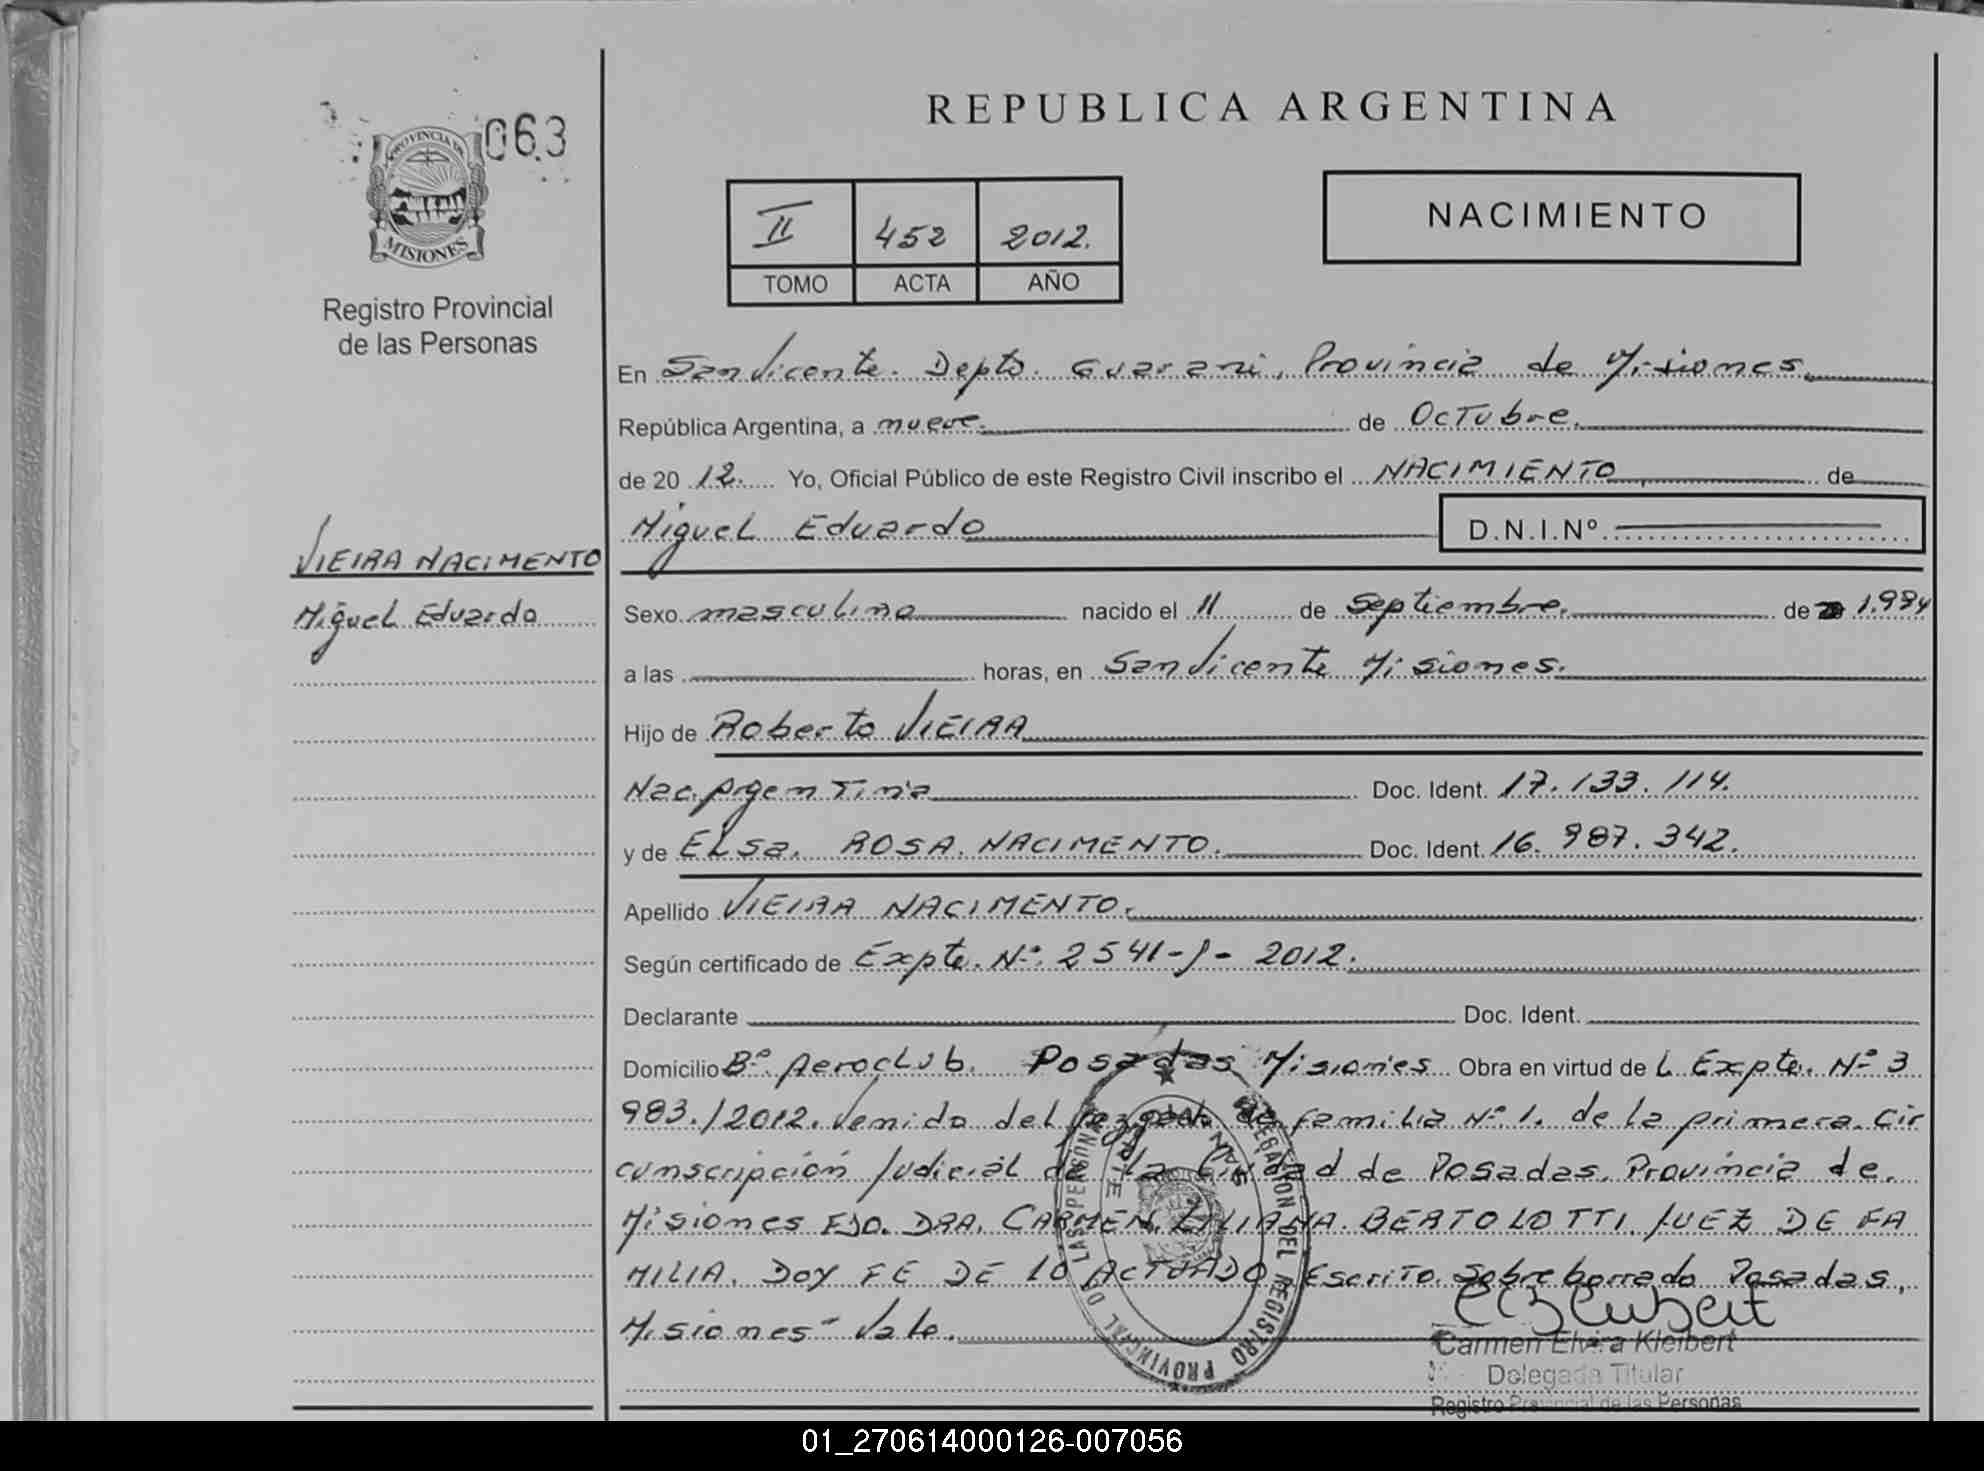 063
PROVINCIA DE
MISIONES
Registro Provincial
de las Personas
REPUBLICA ARGENTINA
NACIMIENTO
II 452 2012.
TOMO ACTA AÑO
En San Vicente. Depto. Guarani, Provincia de Misiones.
República Argentina, a nueve. de Octubre.
de 20 12. Yo, Oficial Público de este Registro Civil inscribo el NACIMIENTO de
Miguel Eduardo D.N.I.Nº
VIEIRA NACIMENTO
Miguel Eduardo
Sexo masculino nacido el 11 de Septiembre. de 1.994
a las horas, en San Vicente Misiones.
Hijo de Roberto VIEIRA
Nac. Argentina Doc. Ident. 17.133.114.
y de ELsa. ROSA. NACIMENTO. Doc. Ident. 16.987.342.
Apellido VIEIRA NACIMENTO.
Según certificado de Expte. Nº. 2541- - 2012.
Declarante Doc. Ident.
Domicilio Bº. Aeroclub. Posadas Misiones Obra en virtud de L Expte. Nº 3
983./2012. Venido del juzgado de familia Nº 1. de la primera. Cir
cunscripción Judicial de la Ciudad de Posadas. Provincia de.
Misiones FDO. DRA. CARMEN. LILIANA. BERTOLOTTI. JUEZ DE FA
MILIA. DOY FE DE LO ACTUADO. Escrito. Sobreborrado Posadas,
Misiones- Vale.
DELEGACION DEL REGISTRO PROVINCIAL DE LAS PERSONAS
Carmen Elvira Kleibert
Delegada Titular
Registro Provincial de las Personas
01_270614000126-007056